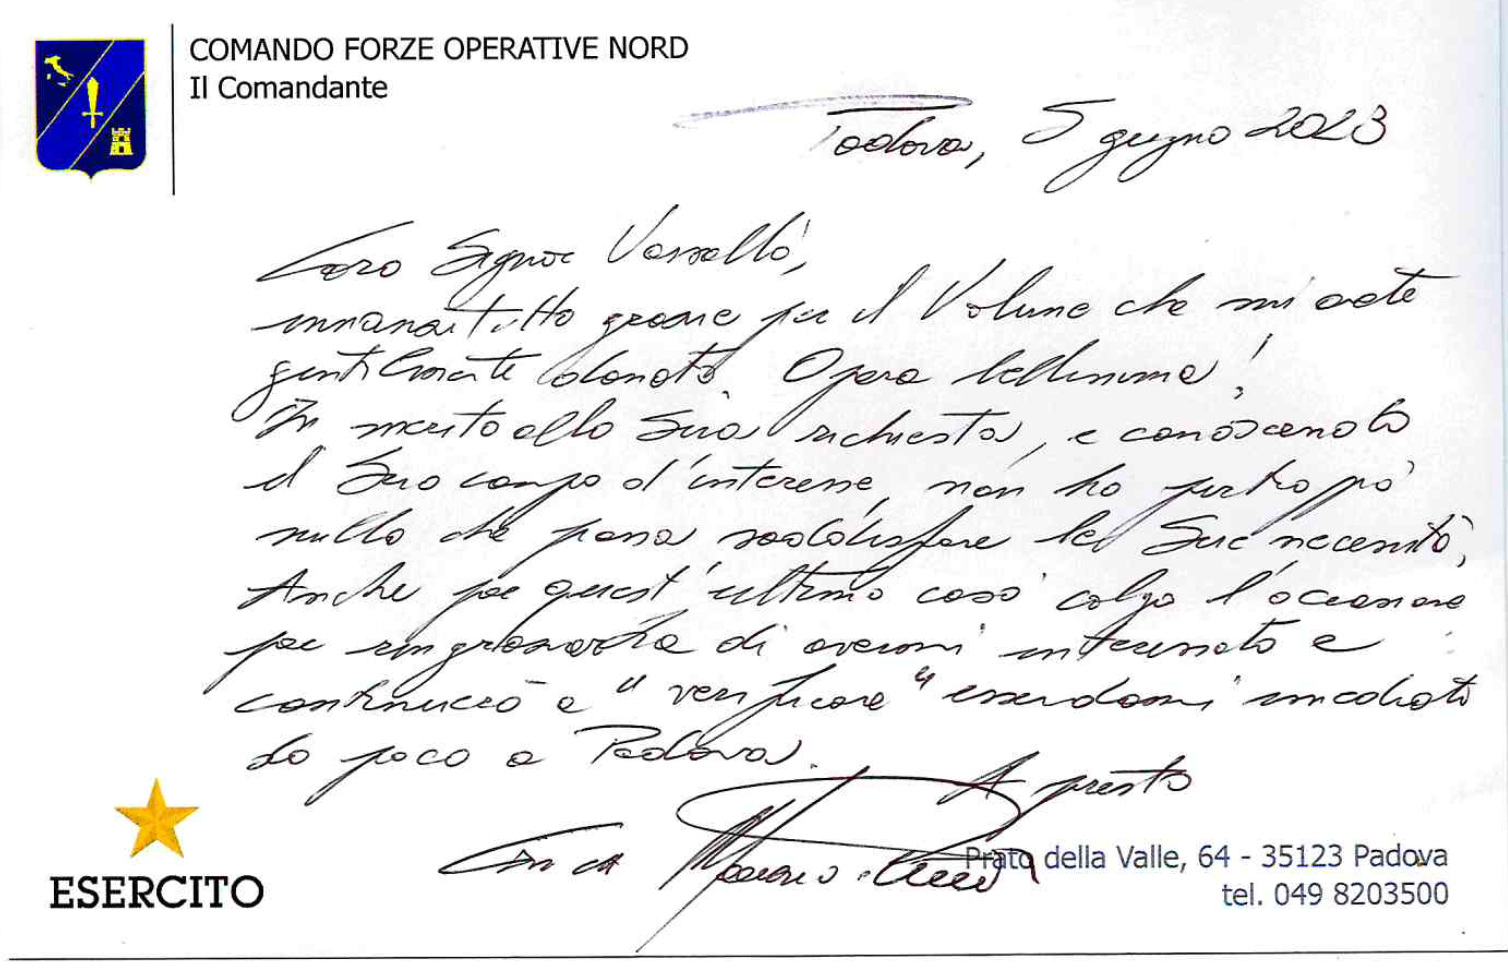 COMANDO FORZE OPERATIVE NORD
Il Comandante
Padova, 5 giugno 2023
Caro Signor Vassallo,
innanzitutto grazie per il Volume che mi avete
gentilmente donato. Opera bellissima!
In merito alla Sua richiesta, e conoscendo
il Suo campo d'interesse, non ho purtroppo
nulla che possa soddisfare le Sue necessità.
Anche per quest'ultimo caso colgo l'occasione
per ringraziarla di avermi interessato e
continuerò a "verificare" essendomi insediato
da poco a Padova.
A presto
ESERCITO
Prato della Valle, 64 - 35123 Padova
tel. 049 8203500